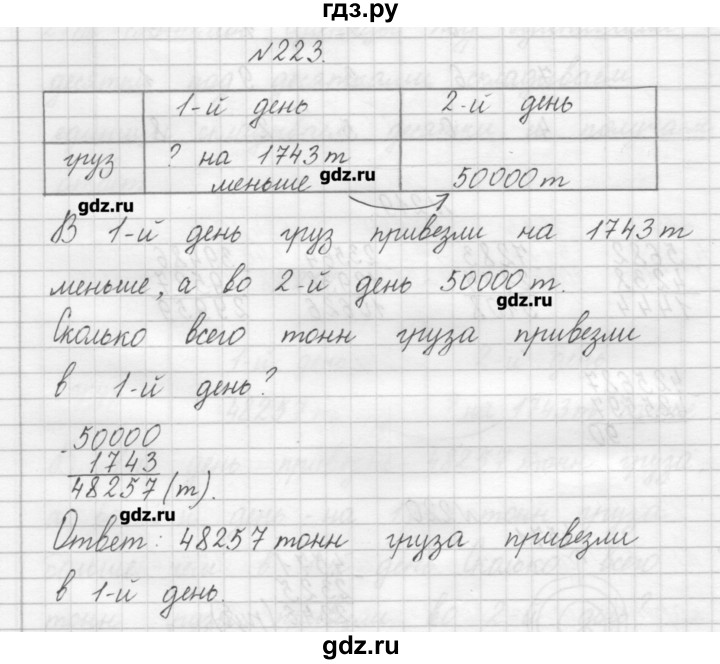 гдз.ру
№223.
1-й день 2-й день
груз ? на 1743т
меньше gdz.ru 50000т
gdz.ru
В 1-й день груз привезли на 1743т
меньше, а во 2-й день 50000т.
gdz.ru
Сколько всего тонн груза привезли
в 1-й день?
- 50000
1743
48257 (т).
gdz.ru
Ответ: 48257 тонн груза привезли
в 1-й день.
gdz.ru